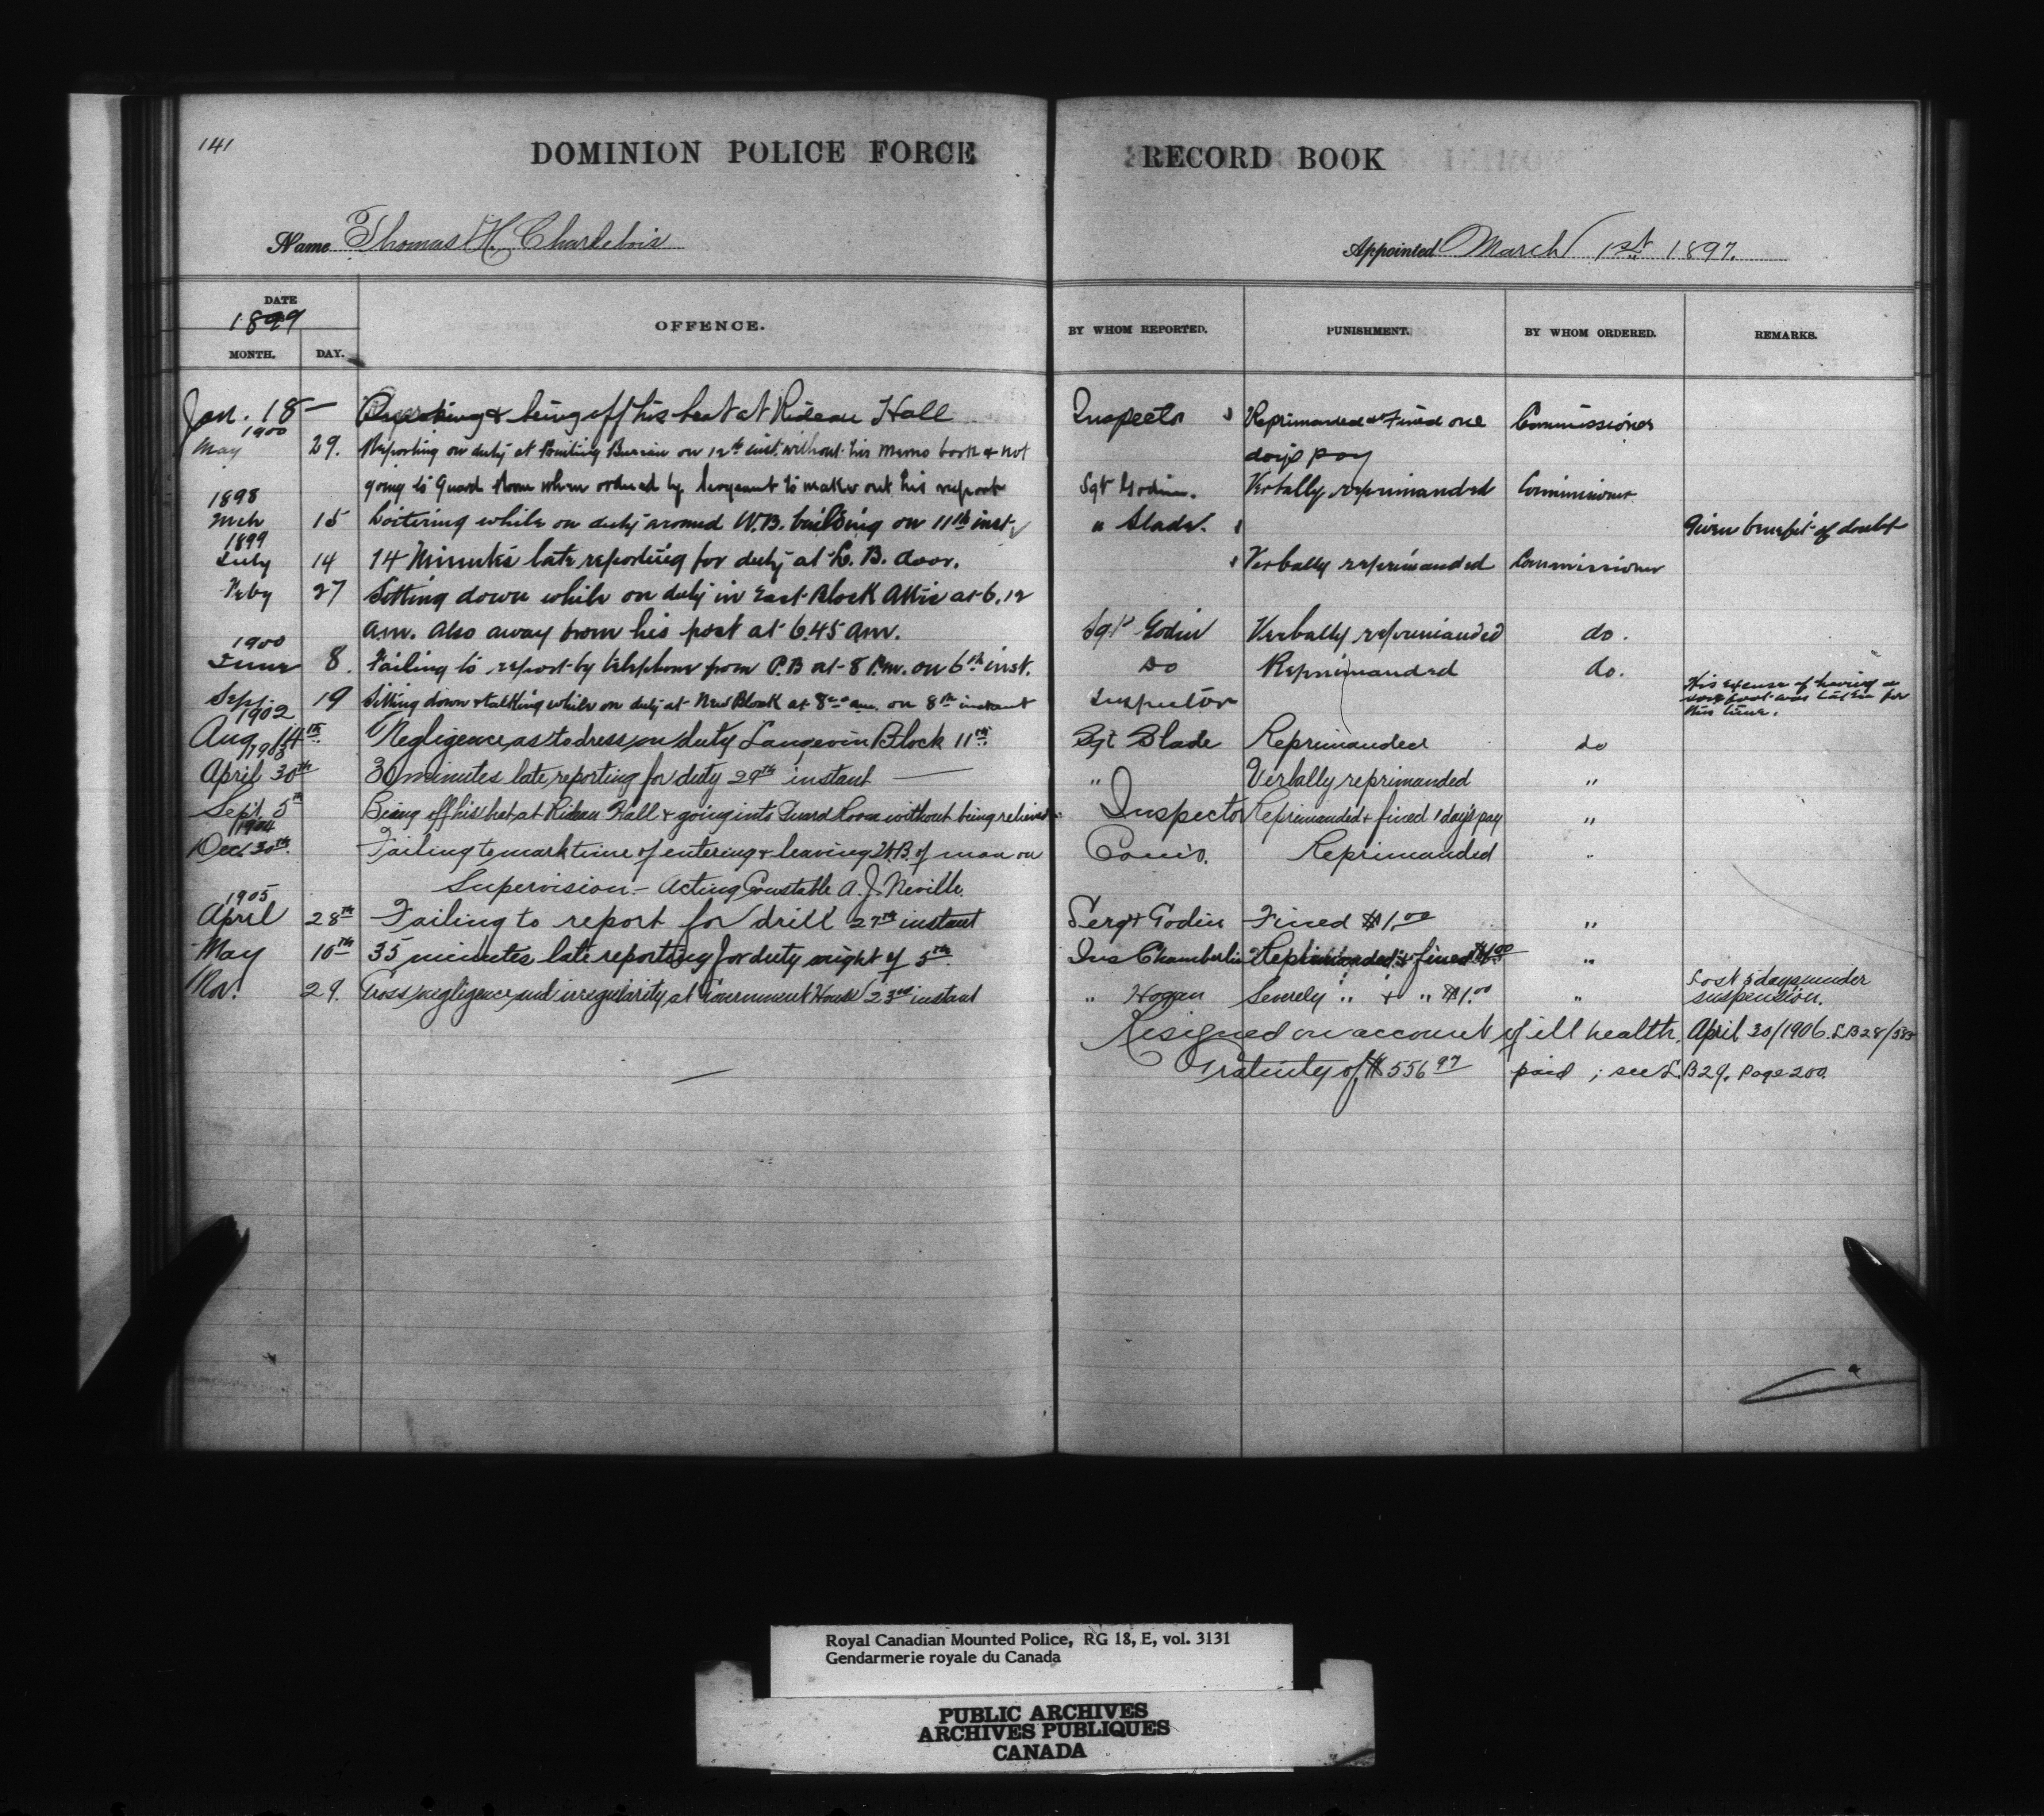 141
DOMINION POLICE FORCE RECORD BOOK
Name Thomas H. Charlebois Appointed March 1st 1897.
DATE
1899
MONTH. DAY. OFFENCE. BY WHOM REPORTED. PUNISHMENT. BY WHOM ORDERED. REMARKS.
Jan. 18 — & being off his beat at Rideau Hall Inspector Reprimanded & Fined one Commissioner
1900
May 29. Reporting on duty at Printing Bureau on 12th inst. without his memo book & not days pay
going to Guard Room when ordered by Sergeant to make out his report Sgt Godin. Verbally reprimanded Commissioner
1898
Mch 15 Loitering while on duty around W.B. building on 11th inst. " Slade. Given benefit of doubt
1899
July 14 14 Minutes late reporting for duty at door. Verbally reprimanded Commissioner
27 Sitting down while on duty in East Block Attic at 6.12
am. Also away from his post at 6.45 am. Sgt Godin Verbally reprimanded do.
1900
June 8. Failing to report by telephone from P.B at 8 P.m. on 6th inst. Do Reprimanded do.
Sep 19 Sitting down & talking while on duty at New Block at 8 am. on 8th instant Inspector His excuse of having a
sore foot was taken for
this time.
1902
Aug 14th Negligence as to dress on duty Langevin Block 11th Sgt Slade Reprimanded do
1903
April 30th 30 minutes late reporting for duty 29th instant — " Verbally reprimanded "
Sept. 5th Being off his beat at Rideau Hall & going into Guard Room without being relieved Inspector Reprimanded & fined 1 day's pay "
1904
Dec. 30th. Failing to mark time of entering & leaving of man on Com'r. Reprimanded "
Supervision — Acting Constable A. J. Neville.
1905
April 28th Failing to report for drill 27th instant Sergt Godin Fined $1.00 "
May 10th 35 minutes late reporting for duty night of 5th. Ins Chamberlin Reprimanded & fined $1.00 "
Nov. 29. Gross negligence and irregularity at Government House 23rd instant " Hogan Severely " & " $1.00 " Lost 5 days under
suspension.
Resigned on account of ill health. April 30/1906. L.B 28/
Gratuity of $556.97 paid ; see L.B 29. Page 200.
Royal Canadian Mounted Police, RG 18, E, vol. 3131
Gendarmerie royale du Canada
PUBLIC ARCHIVES
ARCHIVES PUBLIQUES
CANADA